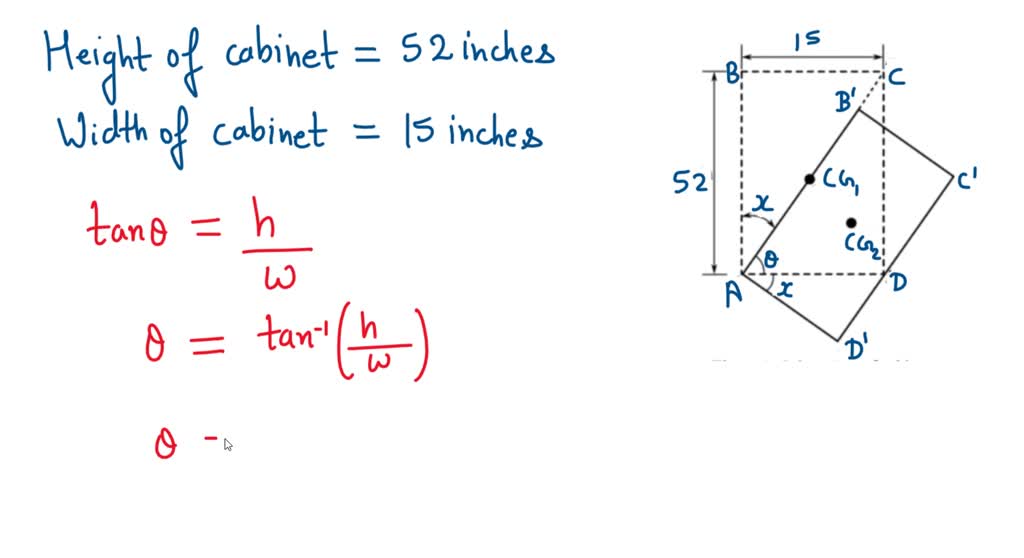 Height of cabinet = 52 inches
Width of cabinet = 15 inches
tanθ = h/ω
θ = tan⁻¹(h/ω)
θ -
15
B
C
B'
52
CG₁
C'
x
CG₂
θ
A
x
D
D'